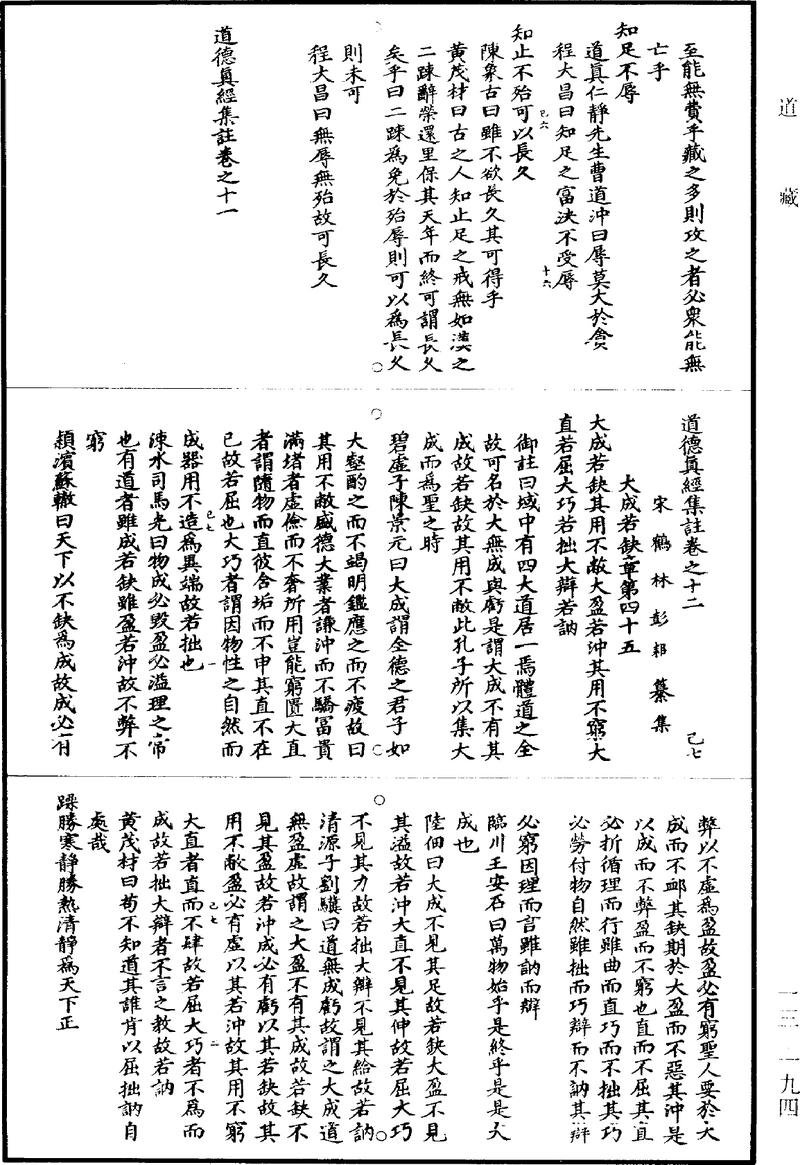 道藏
至能無費乎藏之多則攻之者必衆能無
亡乎
知足不辱
道真仁靜先生曹道沖曰辱莫大於貪
程大昌曰知足之富決不受辱
己六
十六
知止不殆可以長久
陳象古曰雖不欲長久其可得乎
黄茂材曰古之人知止足之戒無如漢之
二踈辭榮還里保其天年而終可謂長久
矣乎曰二踈爲免於殆辱則可以爲長久
則未可
程大昌曰無辱無殆故可長久
道德真經集註卷之十一
道德真經集註卷之十二
己七
宋鶴林彭耜纂集
大成若缺章第四十五
大成若缺其用不敝大盈若沖其用不窮大
直若屈大巧若拙大辯若訥
御註曰域中有四大道居一焉體道之全
故可名於大無成與虧是謂大成不有其
成故若缺故其用不敝此孔子所以集大
成而爲聖之時
碧虛子陳景元曰大成謂全德之君子如
大壑酌之而不竭明鑑應之而不疲故曰
其用不敝盛德大業者謙沖而不驕富貴
滿堵者虛儉而不奢所用豈能窮匱大直
者謂隨物而直彼含垢而不申其直不在
已故若屈也大巧者謂因物性之自然而
成器用不造爲異端故若拙也
己七
一
涑水司馬光曰物成必毀盈必溢理之常
也有道者雖成若缺雖盈若沖故不弊不
窮
潁濱蘇轍曰天下以不缺爲成故成必有
弊以不虛爲盈故盈必有窮聖人要於大
成而不卹其缺期於大盈而不惡其沖是
以成而不弊盈而不窮也直而不屈其直
必折循理而行雖曲而直巧而不拙其巧
必勞付物自然雖拙而巧辯而不訥其辯
必窮因理而言雖訥而辯
臨川王安石曰萬物始乎是終乎是是大
成也
陸佃曰大成不見其足故若缺大盈不見
其溢故若沖大直不見其伸故若屈大巧
不見其力故若拙大辯不見其給故若訥
清源子劉驥曰道無成虧故謂之大成道
無盈虛故謂之大盈不有其成故若缺不
見其盈故若沖成必有虧以其若缺故其
用不敝盈必有虛以其若沖故其用不窮
大直者直而不肆故若屈大巧者不爲而
己七
二
成故若拙大辯者不言之教故若訥
黄茂材曰苟不知道其誰肯以屈拙訥自
處哉
躁勝寒靜勝熱清靜爲天下正
一三—二九四